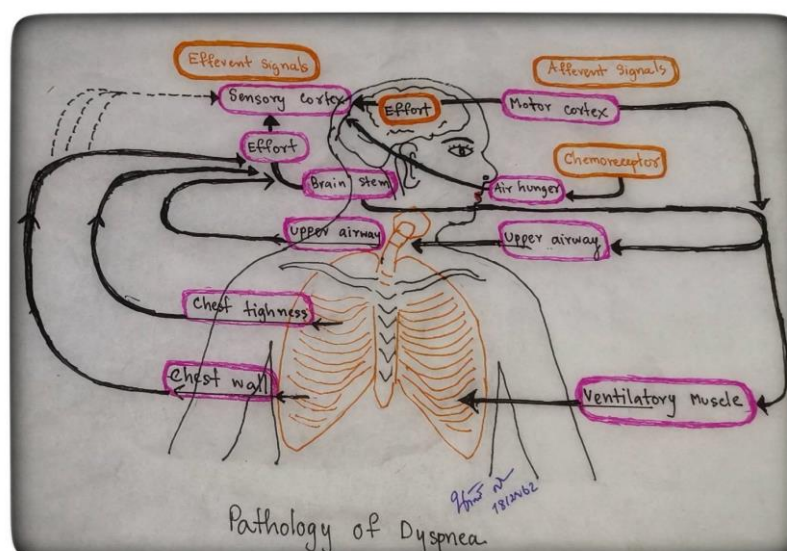 Effevent signals
Affevent signals
Sensory cortex
Effort
Motor cortex
Effort
Chemoreceptor
Brain stem
Air hunger
Upper airway
Upper airway
Chest tighness
Chest wall
Ventilatory Muscle
Pathology of Dyspnea